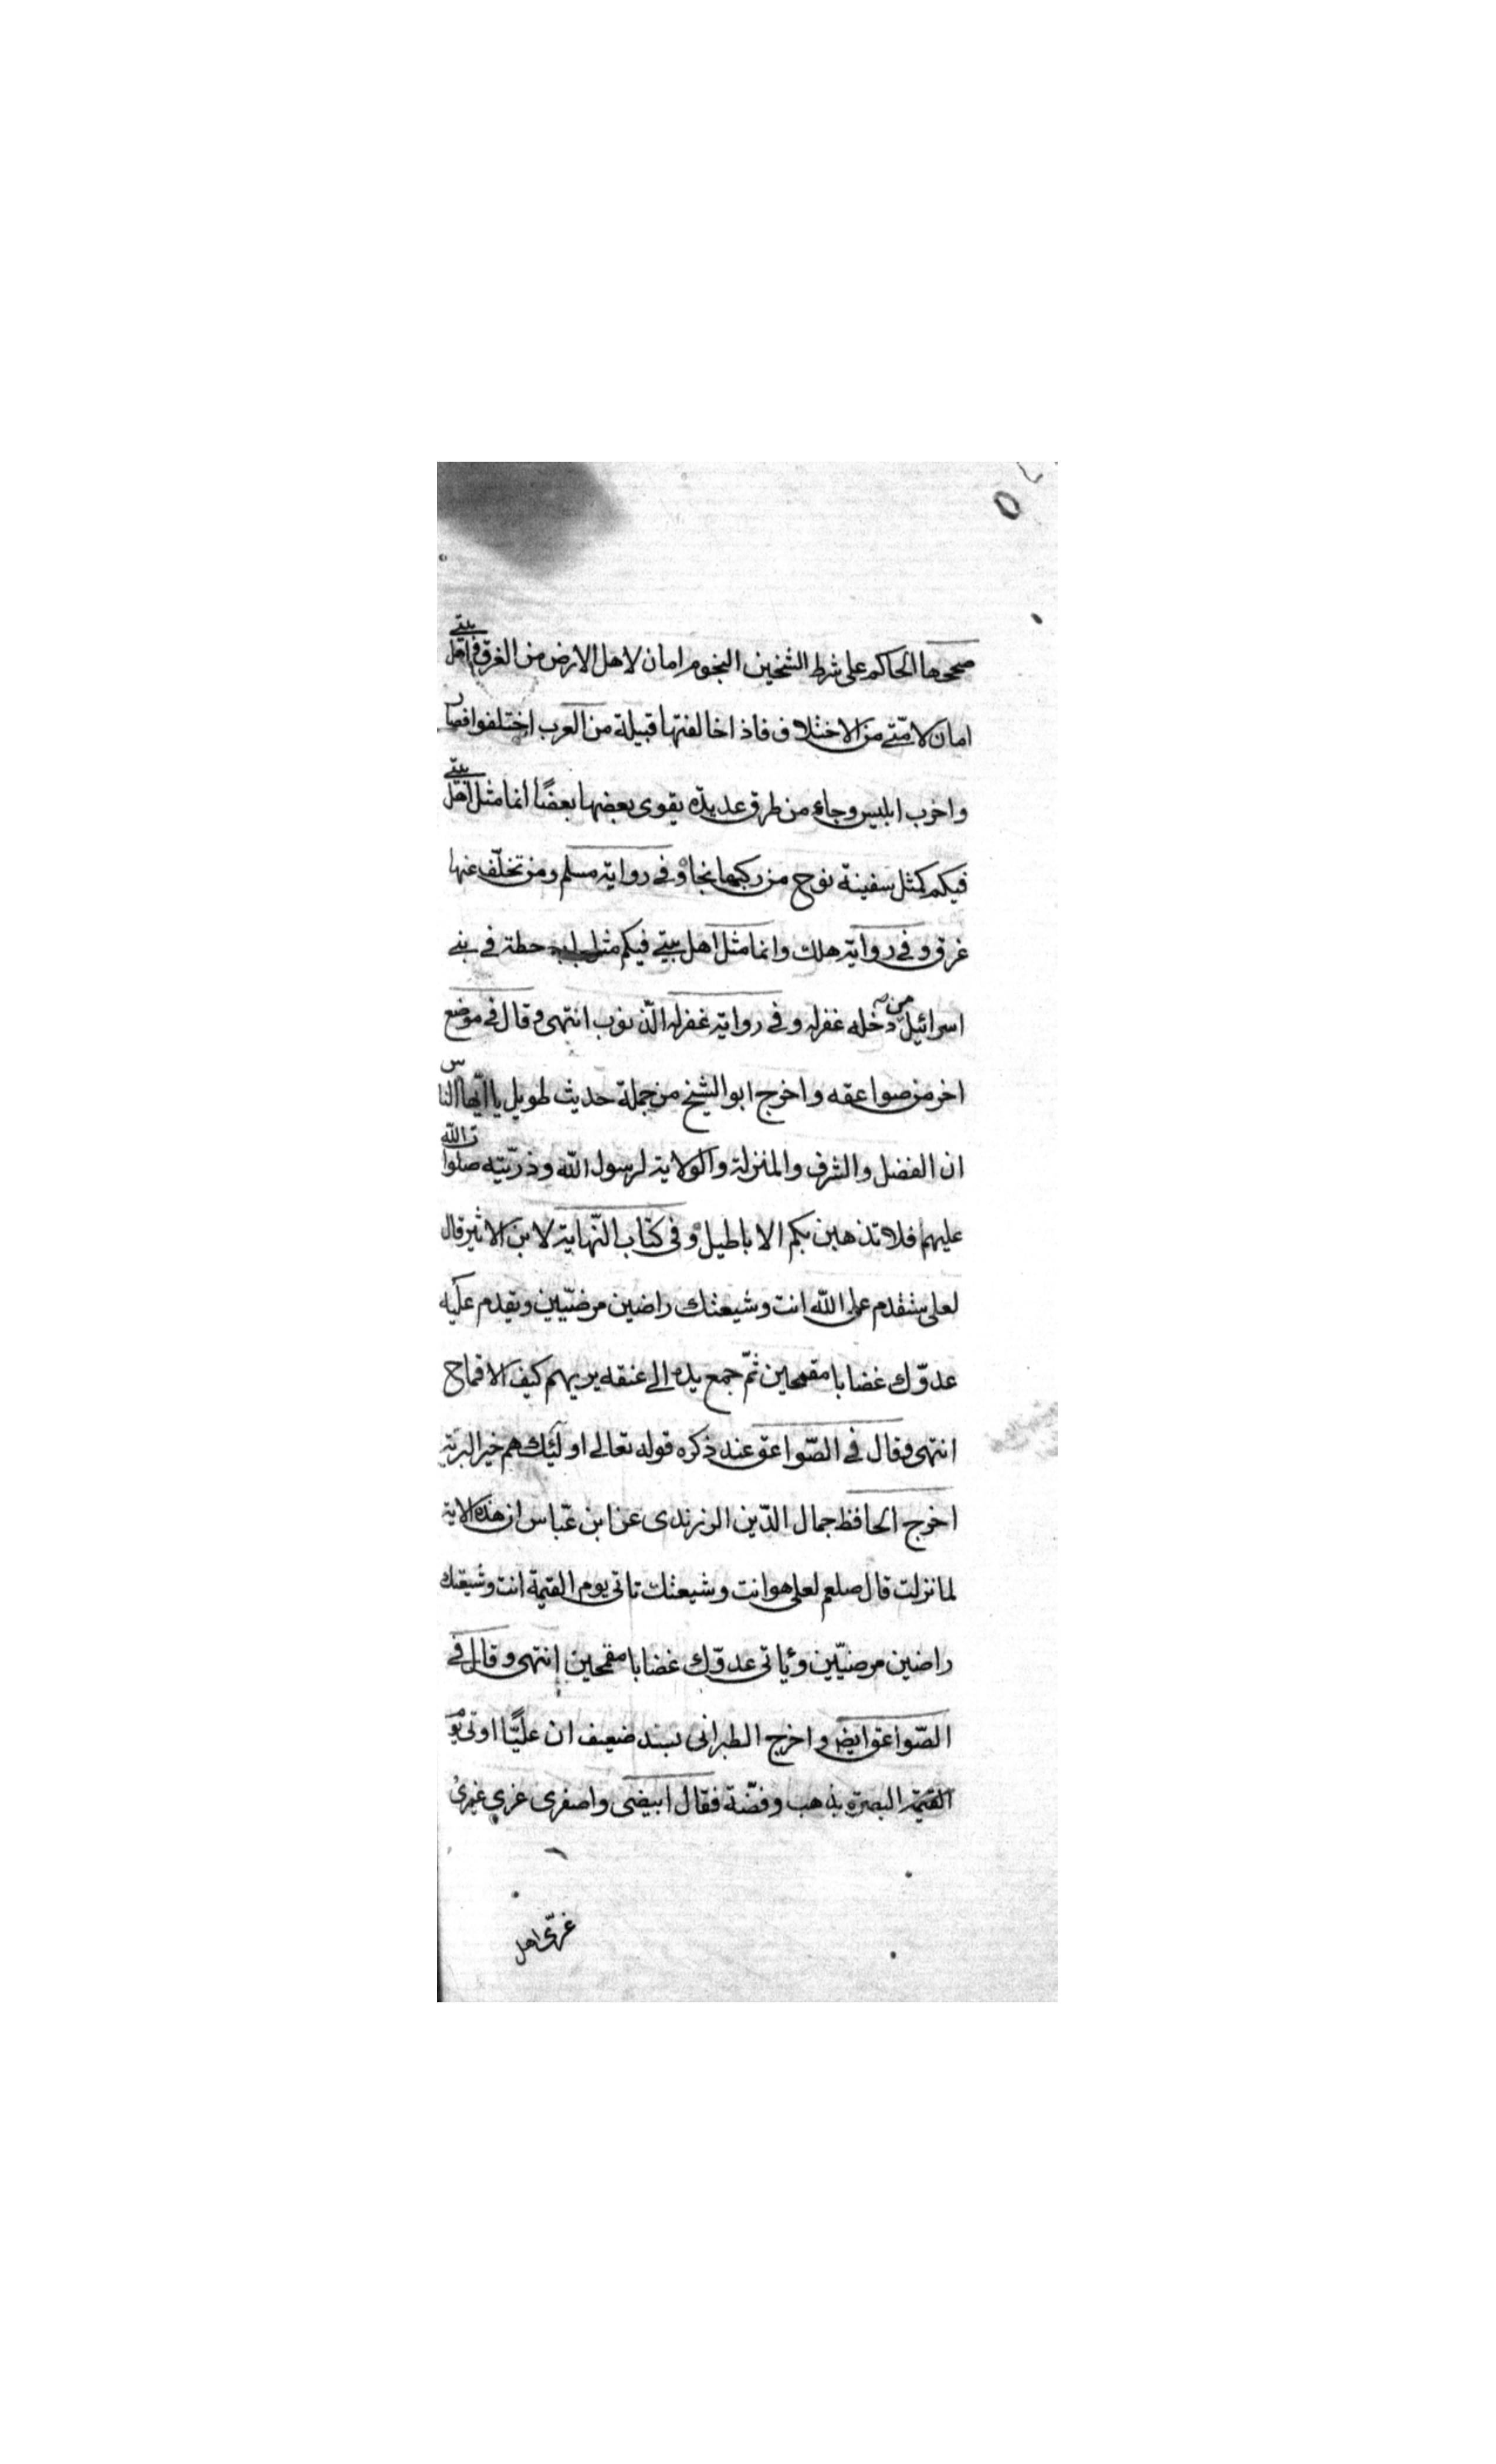 صححها الحاكم على شرط الشيخين النجوم امان لاهل الارض من الغرق واهل بيتي
امان لامتي من الاختلاف فاذا خالفتها قبيلة من العرب اختلفوا فصار
واحزب ابليس وجاء من طرق عديدة يقوى بعضها بعضًا انما مثل اهل بيتي
فيكم كمثل سفينة نوح من ركبها نجا وفي رواية مسلم ومن تخلّف عنها
غرق وفي رواية هلك وانما مثل اهل بيتي فيكم مثل باب حطة في بني
اسرائيل من دخله غفر له وفي رواية غفر له الذنوب انتهى وقال في موضع
اخر من صواعقه واخرج ابو الشيخ من جملة حديث طويل يا ايّها الناس
ان الفضل والشرف والمنزلة والولاية لرسول الله وذرّيته صلوات الله
عليهم فلا تذهبن بكم الاباطيل وفي كتاب النّهاية لابن الاثير قال
لعلي ستقدم على الله انت وشيعتك راضين مرضيّين ويقدم عليه
عدوّك غضابا مقمحين ثمّ جمع يده الى عنقه يريهم كيف الاقماح
انتهى وقال في الصّواعق عند ذكره قوله تعالى اولئك هم خير البرية
اخرج الحافظ جمال الدّين الزرندى عن ابن عبّاس ان هذه الاية
لما نزلت قال صلعم لعلى هو انت وشيعتك تاتى يوم القيمة انت وشيعتك
راضين مرضيّين وياتى عدوّك غضابا مقمحين انتهى وقال في
الصّواعق ايضا واخرج الطبرانى بسند ضعيف ان عليّا اوتى يوم
البصرة بذهب وفضّة فقال ابيضى واصفرى غري غيرى
غرّى اهل